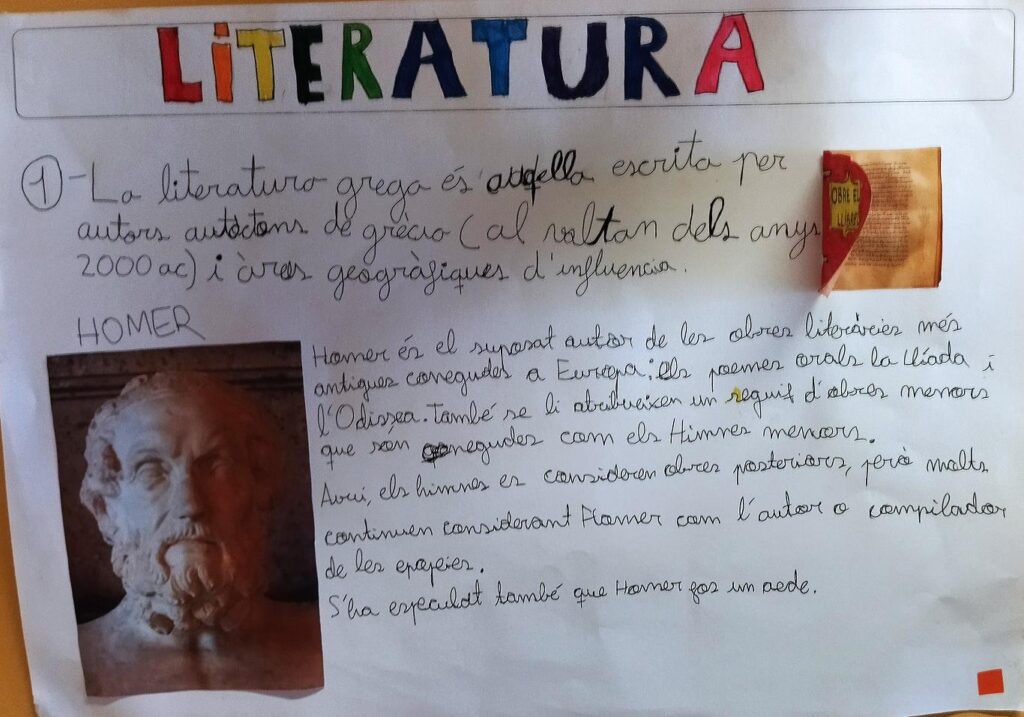 LiTERATURA
1 - La literatura grega és aquella escrita per
autors autòctons de grècia (al voltan dels anys
2000 ac) i àrees geogràfiques d'influencia.
OBRE EL
LLIBRE
HOMER
Homer és el suposat autor de les obres literàries més
antigues conegudes a Europa; els poemes orals la Ilíada i
l'Odissea. també se li atribueixen un reguif d'obres menors
que són conegudes com els Himnes menors.
Avui, els himnes es consideren obres posteriors, però molts
continuen considerant Homer com l'autor o compilador
de les epopeies.
S'ha especulat també que Homer fos un aede.